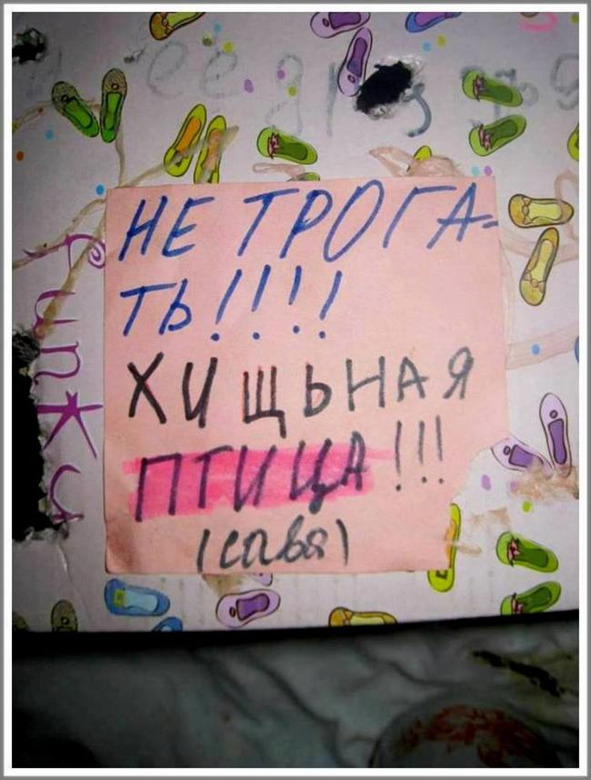 НЕ ТРОГА-
ТЬ!!!!
ХИЩЬНАЯ
ПТИЦА!!!
(сава)
Funky